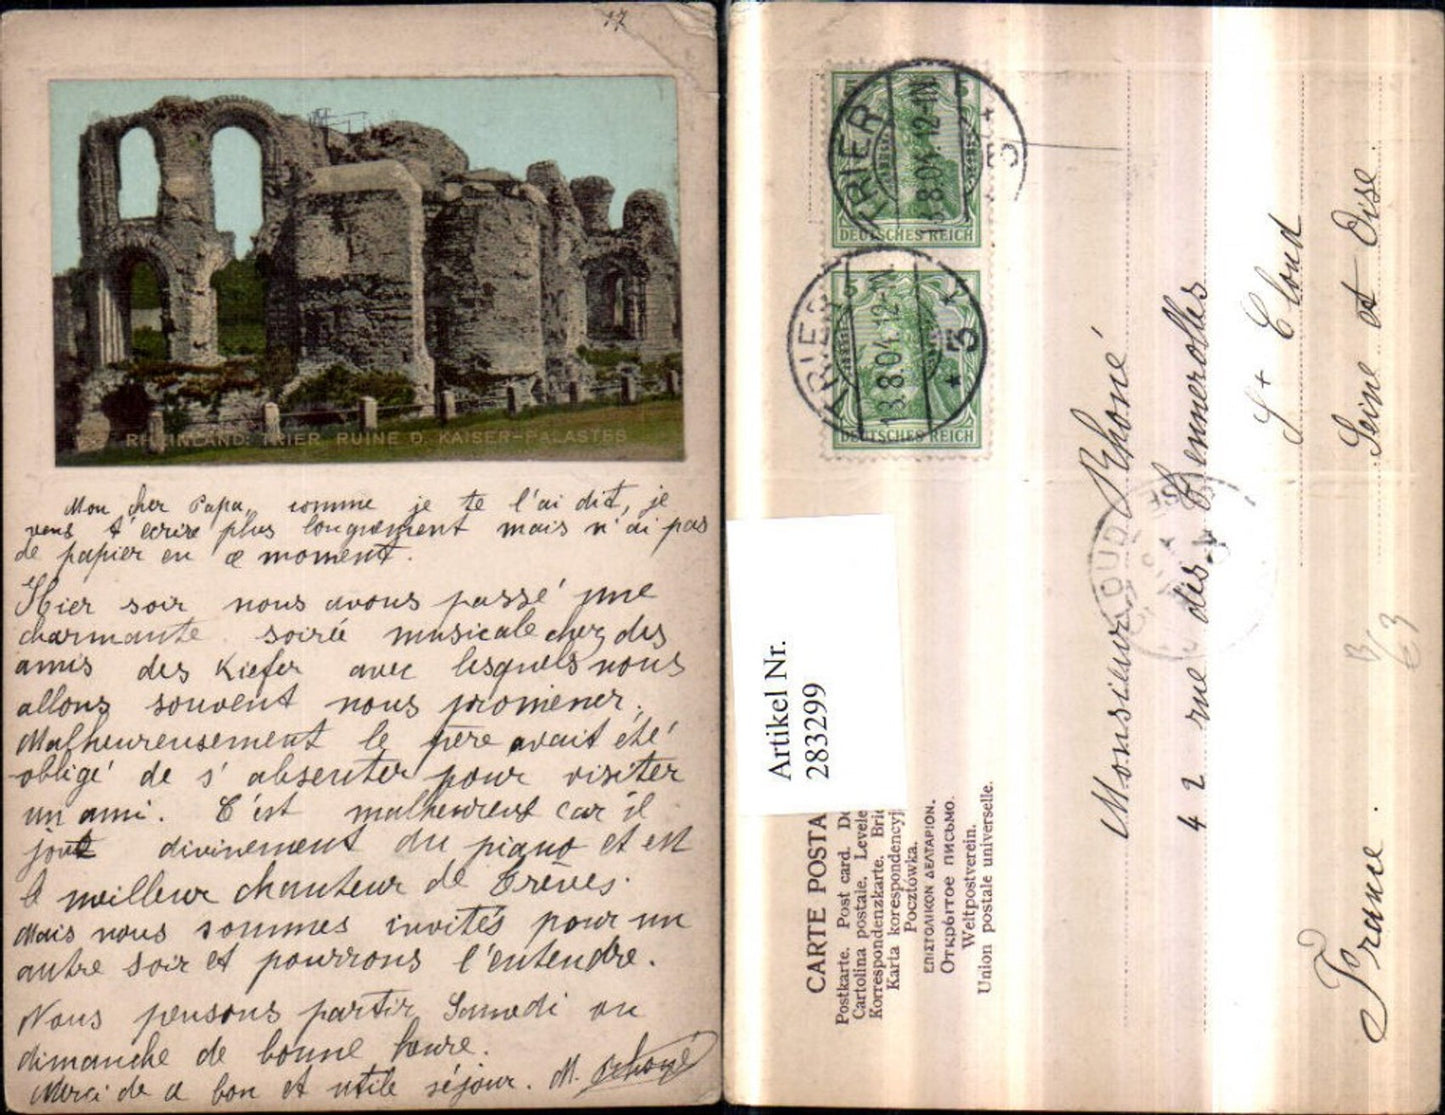 17
RHEINLAND: TRIER RUINE D. KAISER-PALASTES
Mon cher Papa, comme je te l'ai dit, je
veux t'écrire plus longuement mais n'ai pas
de papier en ce moment.
Hier soir nous avons passé une
charmante soirée musicale chez des
amis des Kiefer avec lesquels nous
allons souvent nous promener.
Malheureusement le père avait été
obligé de s'absenter pour visiter
un ami. C'est malheureux car il
joue divinement du piano et est
le meilleur chanteur de Trèves.
Mais nous sommes invités pour un
autre soir et pourrons l'entendre.
Nous pensons partir Samedi ou
dimanche de bonne heure.
Merci de ce bon et utile séjour. M. Rhoné
TRIER
13.8.04.12-1N.
* 5
DEUTSCHES REICH
TRIER
13.8.04.12-1N.
* 5 *
DEUTSCHES REICH
Artikel Nr.
2833299
CARTE POSTA
Postkarte. Post card.
Cartolina postale. Levele
Korrespondenzkarte.
Karta korespondencyj
Pocztówka.
ΕΠΙΣΤΟΛΙΚΟΝ ΔΕΛΤΑΡΙΟΝ.
Открытое письмо.
Weltpostverein.
Union postale universelle.
Monsieur Rhoné
42 rue des Tennerolles
St Cloud
Seine et Oise.
France.